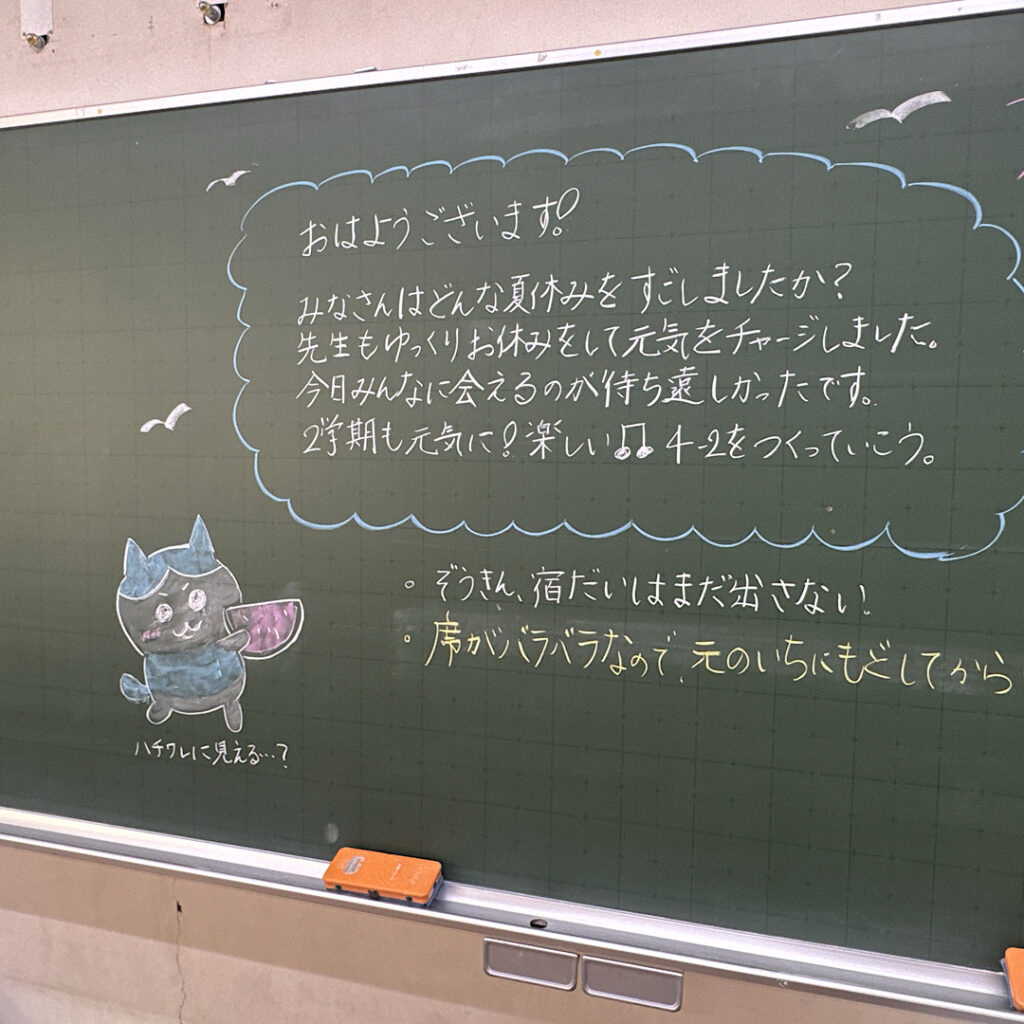 おはようございます!
みなさんはどんな夏休みをすごしましたか?
先生もゆっくりお休みをして元気をチャージしました。
今日みんなに会えるのが待ち遠しかったです。
2学期も元気に!楽しい♫4-2をつくっていこう。
。ぞうきん、宿だいはまだ出さない!
。席がバラバラなので、元のいちにもどしてから
ハチワレに見える…?